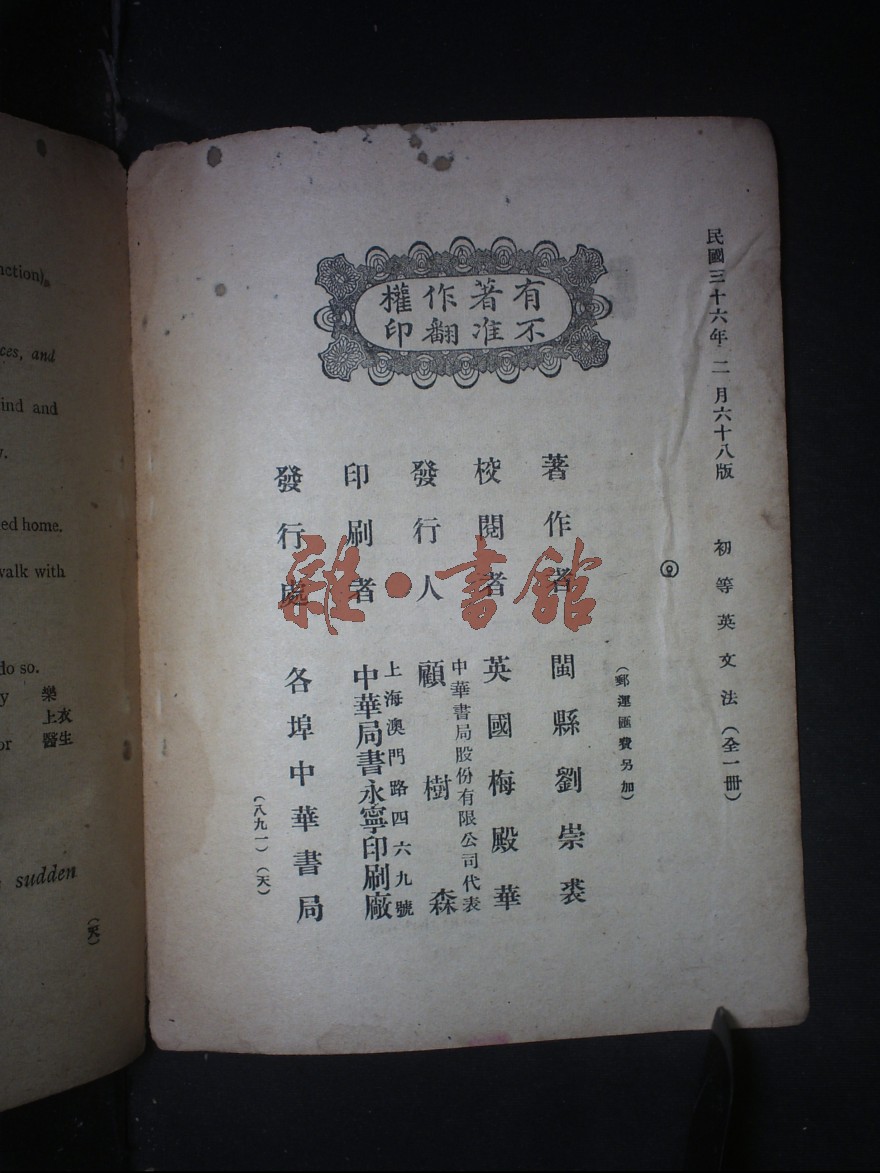 民國三十六年二月六十八版
初等英文法(全一冊)
(郵運匯費另加)
有著作權
不准翻印
著作者 閩縣劉崇裘
校閱者 英國梅殿華
中華書局股份有限公司代表
發行人 顧樹森
上海澳門路四六九號
印刷者 中華局書永寧印刷廠
發行處 各埠中華書局
(八九一)(天)
雜·書館
nction),
ces, and
ind and
y.
ed home.
walk with
do so.
y 樂
上衣
or 醫生
sudden